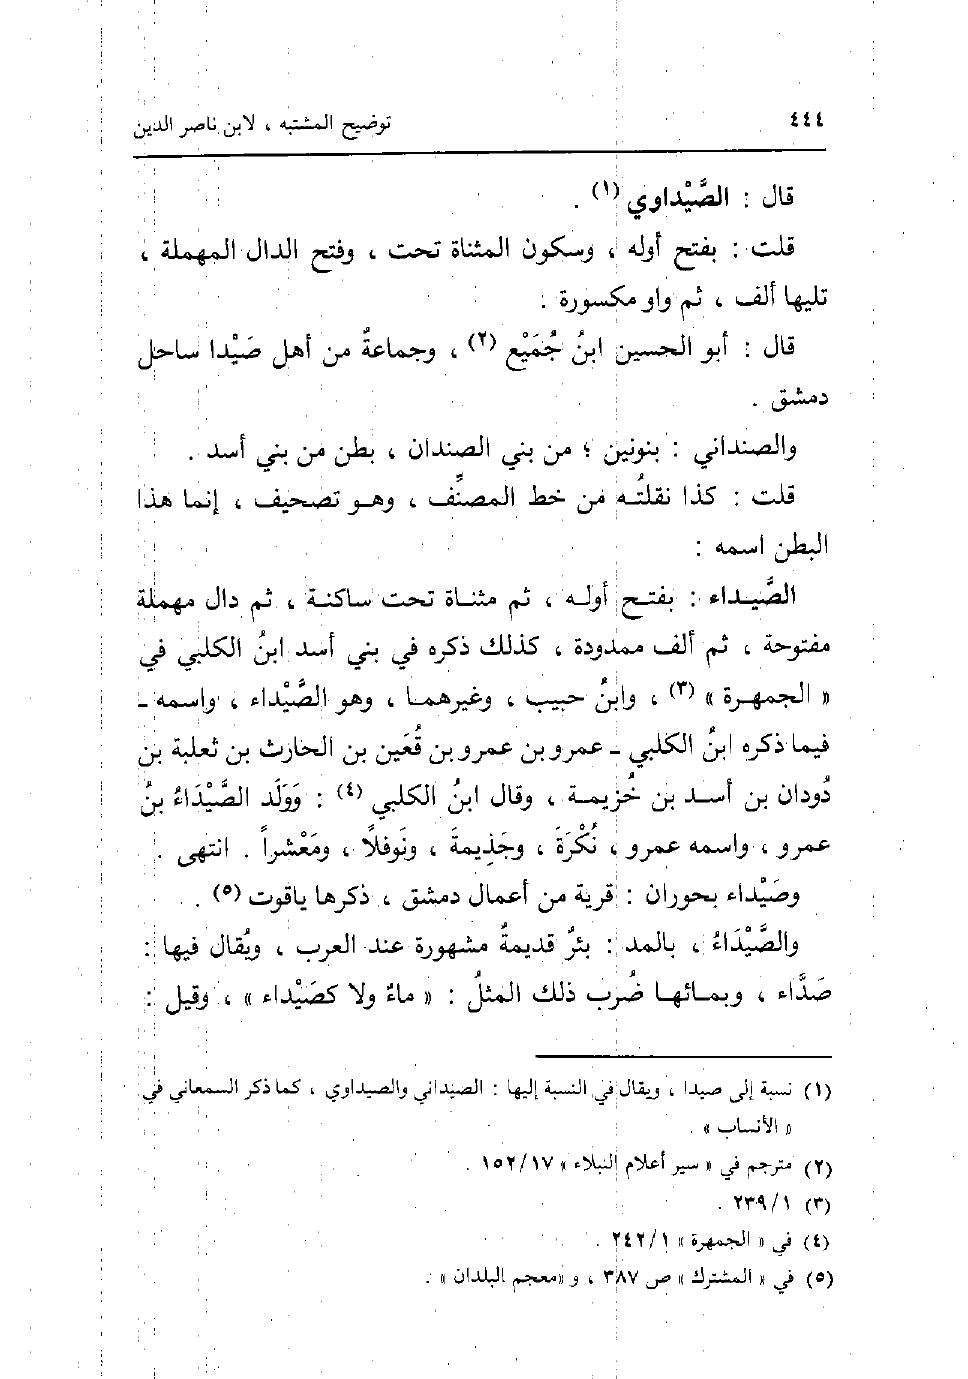 ٤٤٤ توضيح المشتبه ، لابن ناصر الدين
قال : الصَّيْداوي (١) .
قلت : بفتح أوله ، وسكون المثناة تحت ، وفتح الدال المهملة ،
تليها ألف ، ثم واو مكسورة .
قال : أبو الحسين ابنُ جُمَيْع (٢) ، وجماعةٌ من أهل صَيْدا ساحل
دمشق .
والصنداني : بنونين ؛ من بني الصندان ، بطن من بني أسد .
قلت : كذا نقلتُه من خط المصنِّف ، وهو تصحيف ، إنما هذا
البطن اسمه :
الصَّيداء : بفتح أوله ، ثم مثناة تحت ساكنة ، ثم دال مهملة
مفتوحة ، ثم ألف ممدودة ، كذلك ذكره في بني أسد ابنُ الكلبي في
« الجمهرة » (٣) ، وابنُ حبيب ، وغيرهما ، وهو الصَّيْداء ، واسمه -
فيما ذكره ابنُ الكلبي - عمرو بن عمرو بن قُعَين بن الحارث بن ثعلبة بن
دُودان بن أسد بن خُزيمة ، وقال ابنُ الكلبي (٤) : وَوَلَد الصَّيْدَاءُ بنُ
عمرو ، واسمه عمرو ، نُكْرَةَ ، وجَذِيمةَ ، ونَوفلاً ، ومَعْشراً . انتهى .
وصَيْداء بحوران : قرية من أعمال دمشق ، ذكرها ياقوت (٥) .
والصَّيْدَاءُ ، بالمد : بئرٌ قديمةٌ مشهورة عند العرب ، ويُقال فيها :
صَدَّاء ، وبمائها ضُرب ذلك المثلُ : « ماءٌ ولا كصَيْداء » ، وقيل :
(١) نسبة إلى صيدا ، ويقال في النسبة إليها : الصيداني والصيداوي ، كما ذكر السمعاني في
« الأنساب » .
(٢) مترجم في « سير أعلام النبلاء » ١٥٢/١٧ .
(٣) ٢٣٩/١ .
(٤) في « الجمهرة » ٢٤٢/١ .
(٥) في « المشترك » ص ٣٨٧ ، و «معجم البلدان » .